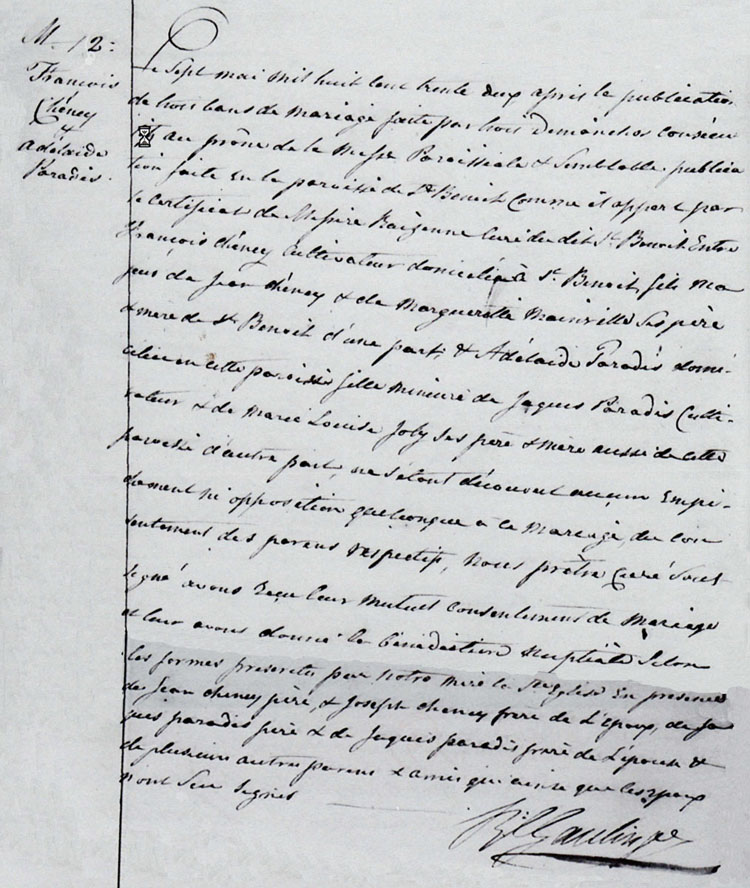 M. 12:
François
Chéney
&
adélaïde
Paradis.
Le Sept mai mil huit cent trente deux après la publication
de trois bans de mariage faite par trois dimanches consécu
au prône de la Messe Paroissiale & Semblable publica
tion faite en la paroisse de St. Benoit Comme il appert par
le certificat de Messire Curé du dit St. Benoit Entre
François Chéney Cultivateur domicilié à St. Benoit, fils ma
jeur de Jean Chéney & de Marguerite Mainville Ses père
& mere de St. Benoit d'une part, & Adélaïde Paradis domi-
ciliée en cette paroisse fille mineure de Jaques Paradis Culti-
vateur & de Marie Louise Joly Ses père & mère aussi de cette
paroisse d'autre part, ne s'étant découvert aucun Empê-
chement ni opposition quelconque à ce Mariage, du con
sentement des parens respectifs, Nous prêtre Curé Sous
signé avons Reçu leur Mutuel Consentement de Mariage
& leur avons donné la bénédiction Nuptiale Selon
les formes prescrites par notre mère la Ste. église En presence
de Jean cheney père, & Joseph Cheney frere de L'époux, de Ja
ques paradis père & de Jaques paradis frère de L'épouse &
de plusieurs autres parens & amis qui ainsi que les époux
n'ont Seu Signer